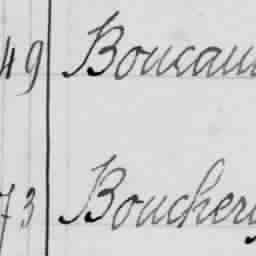 49 Boucau
73 Bouchery